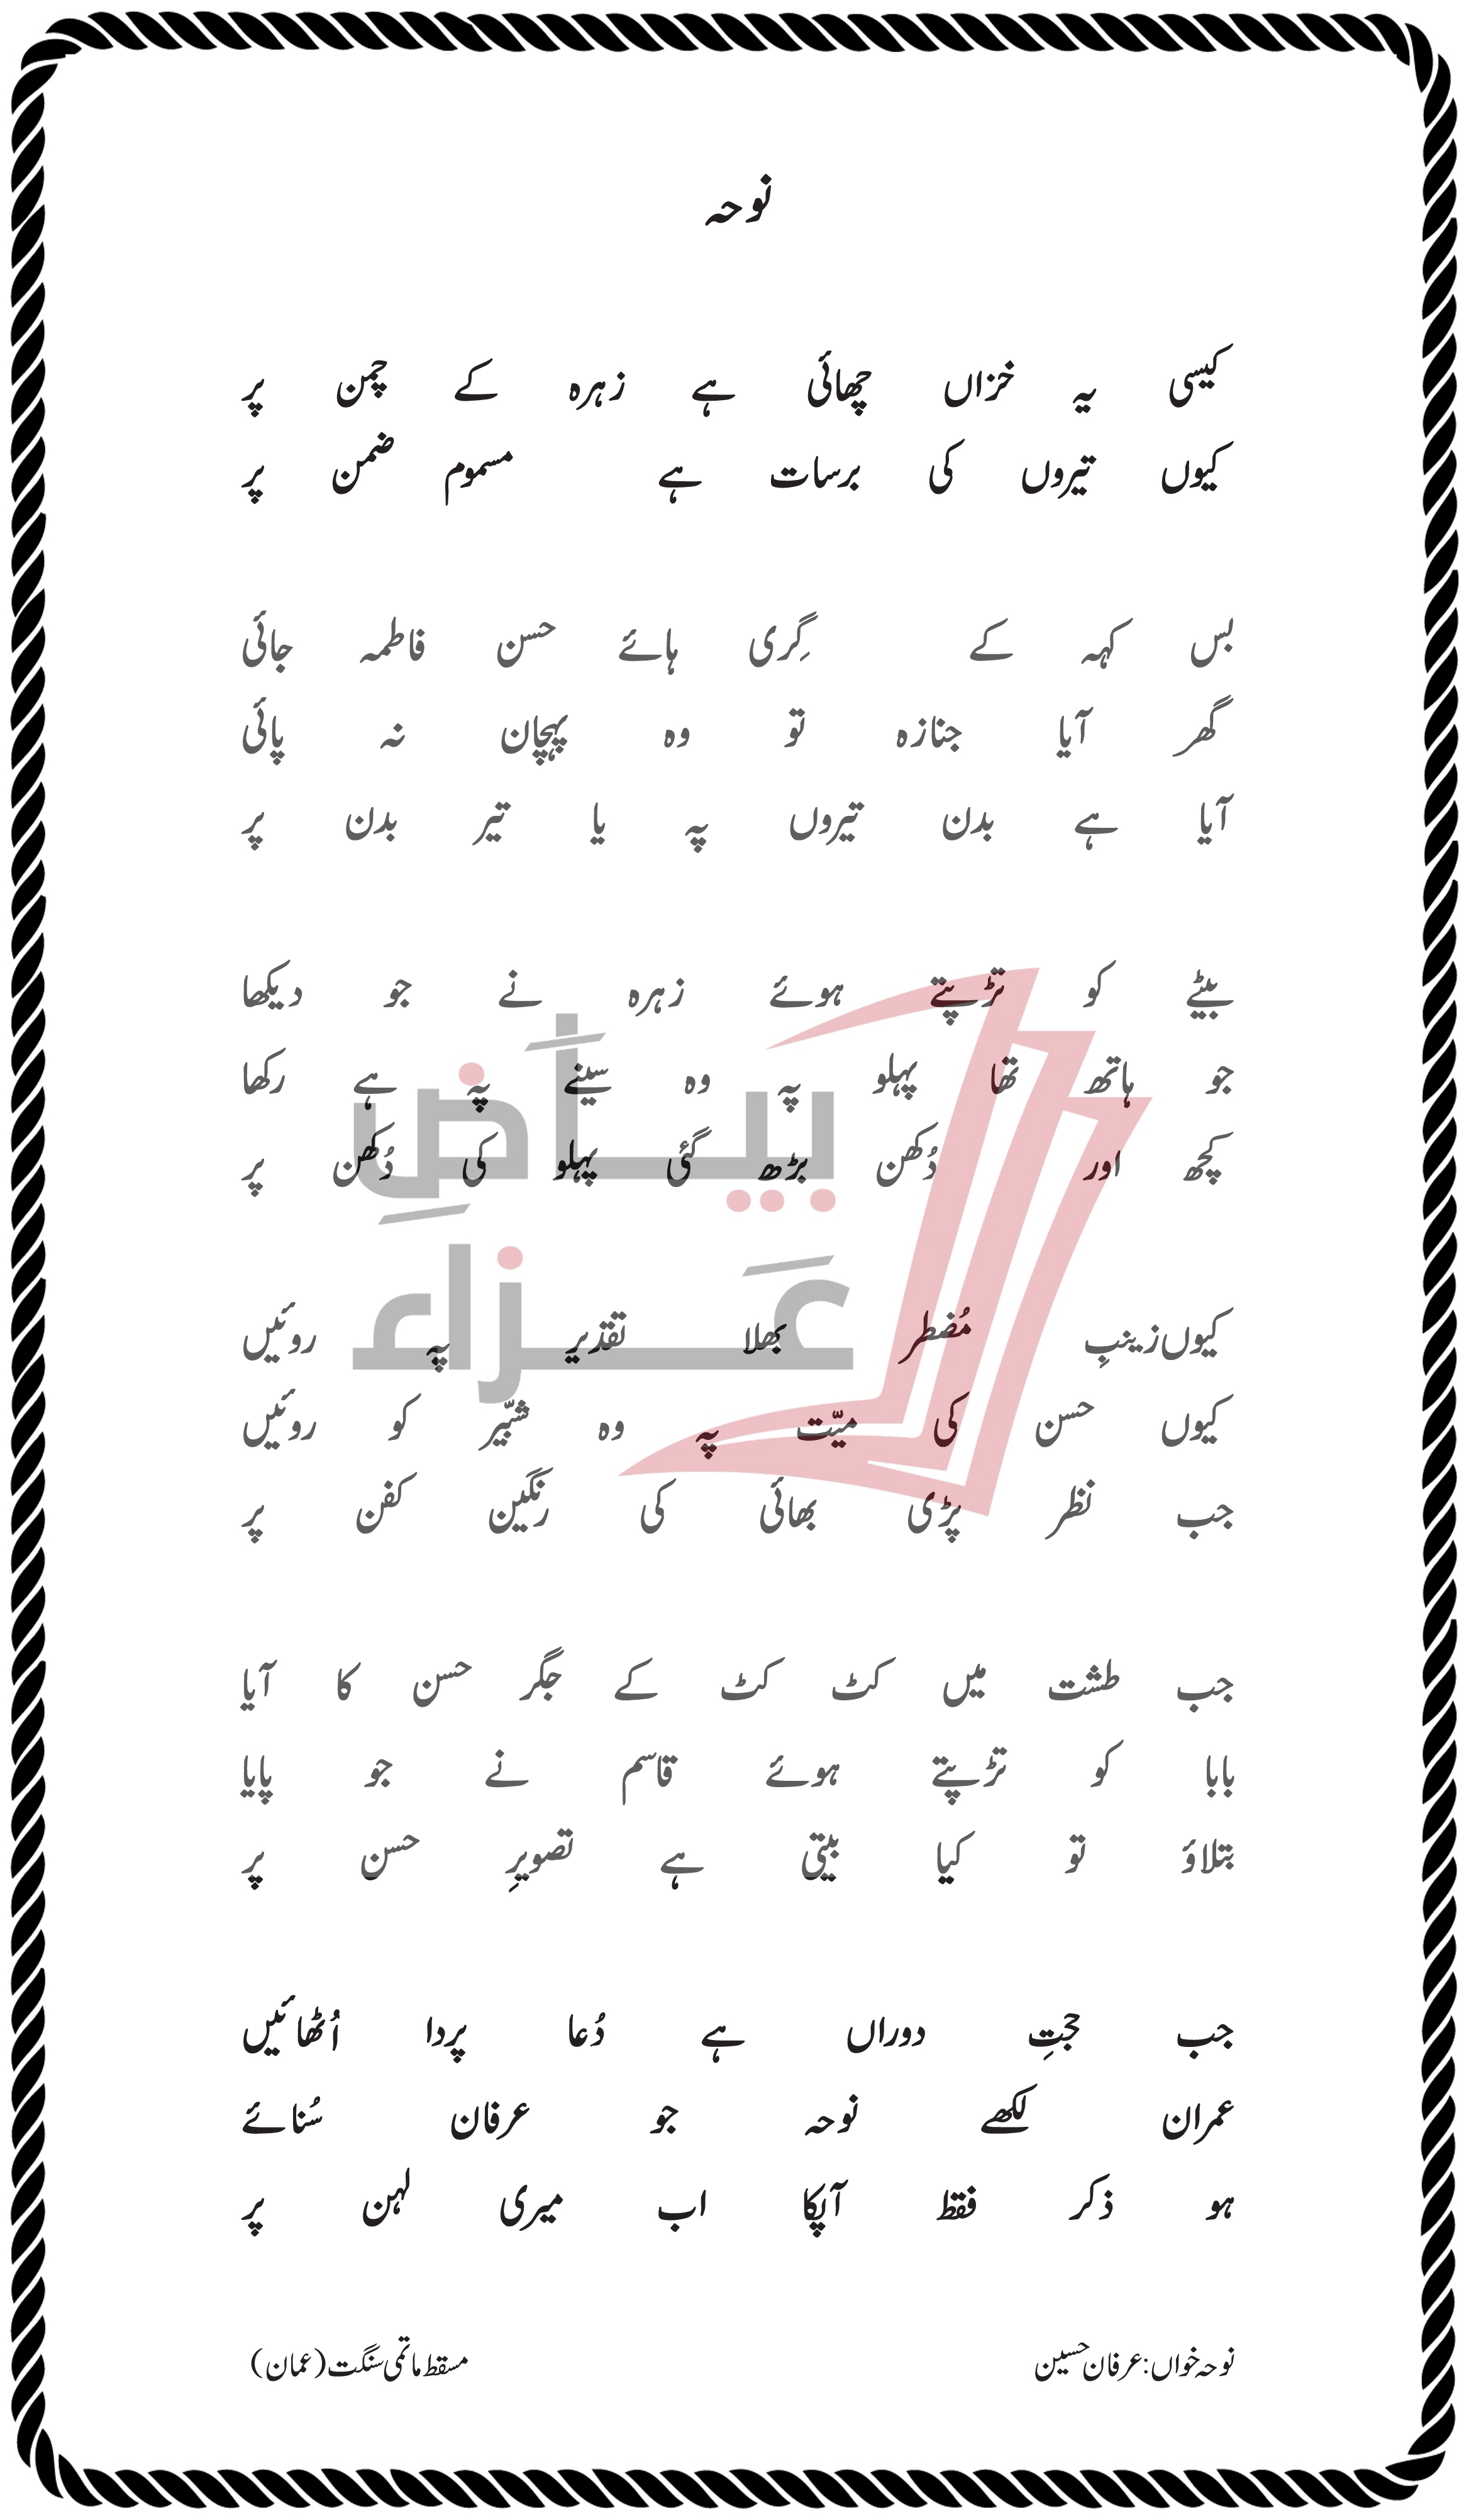 نوحہ
کیسی یہ خزاں چھائی ہے زہرہ کے چمن پر
کیوں تیروں کی برسات ہے مسموم ضمن پر
بس کہہ کے گِری ہائے حسن فاطمہ جائی
گھر آیا جنازہ تو وہ پہچان نہ پائی
آیا ہے بدن تیروں پہ یا تیر بدن پر
بیٹے کو تڑپتے ہوئے زہرہ نے جو دیکھا
جو ہاتھ تھا پہلو پہ وہ سینے پہ ہے رکھا
کچھ اور دُکھن بڑھ گئی پہلو کی دُکھن پر
کیوں زینبِ مُضطر بھلا تقدیر پہ روئیں
کیوں حسن کی میّت پہ وہ شبّیر کو روئیں
جب نظر پڑی بھائی کی رنگین کفن پر
جب طشت میں کٹ کٹ کے جگر حسن کا آیا
بابا کو تڑپتے ہوئے قاسم نے جو پایا
بتلاؤ تو کیا بیتی ہے تصویرِ حسن پر
جب حجتِ دوراں ہے دُعا پردا اُٹھائیں
عمران لکھے نوحہ جو عرفان سُنائے
ہو ذکر فقط آپکا اب میری لہن پر
نوحہ خواں: عرفان حسین مسقط ماتمی سنگت (عمان)
بیاضِ
عزاء